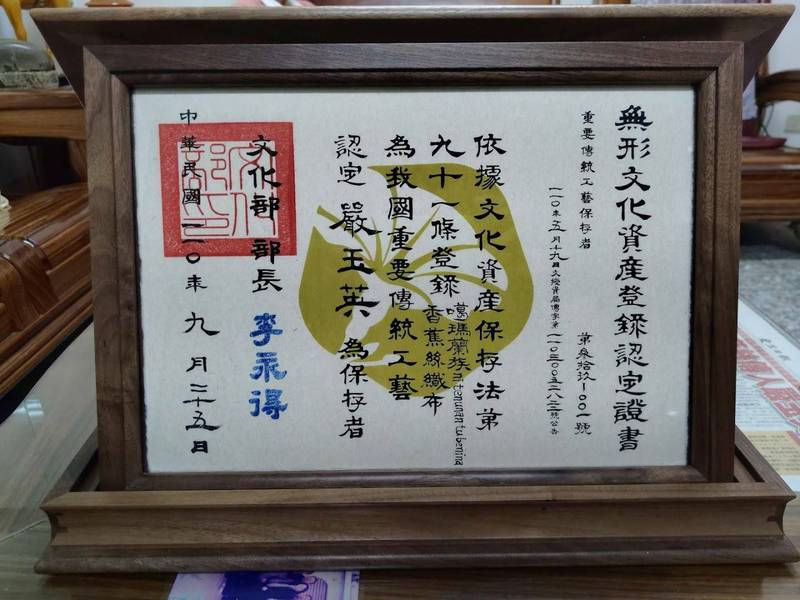 無形文化資產登錄認定證書
重要傳統工藝保存者
第叁拾玖-001號
一一〇年五月十九日文授資局傳字第一一〇三〇〇五二八二二號公告
依據文化資產保存法第
九十一條登錄噶瑪蘭族ni tenunan tu benina
香蕉絲織布
為我國重要傳統工藝
認定 嚴玉英 為保存者
文化部部長 李永得
中華民國一一〇年九月二十五日